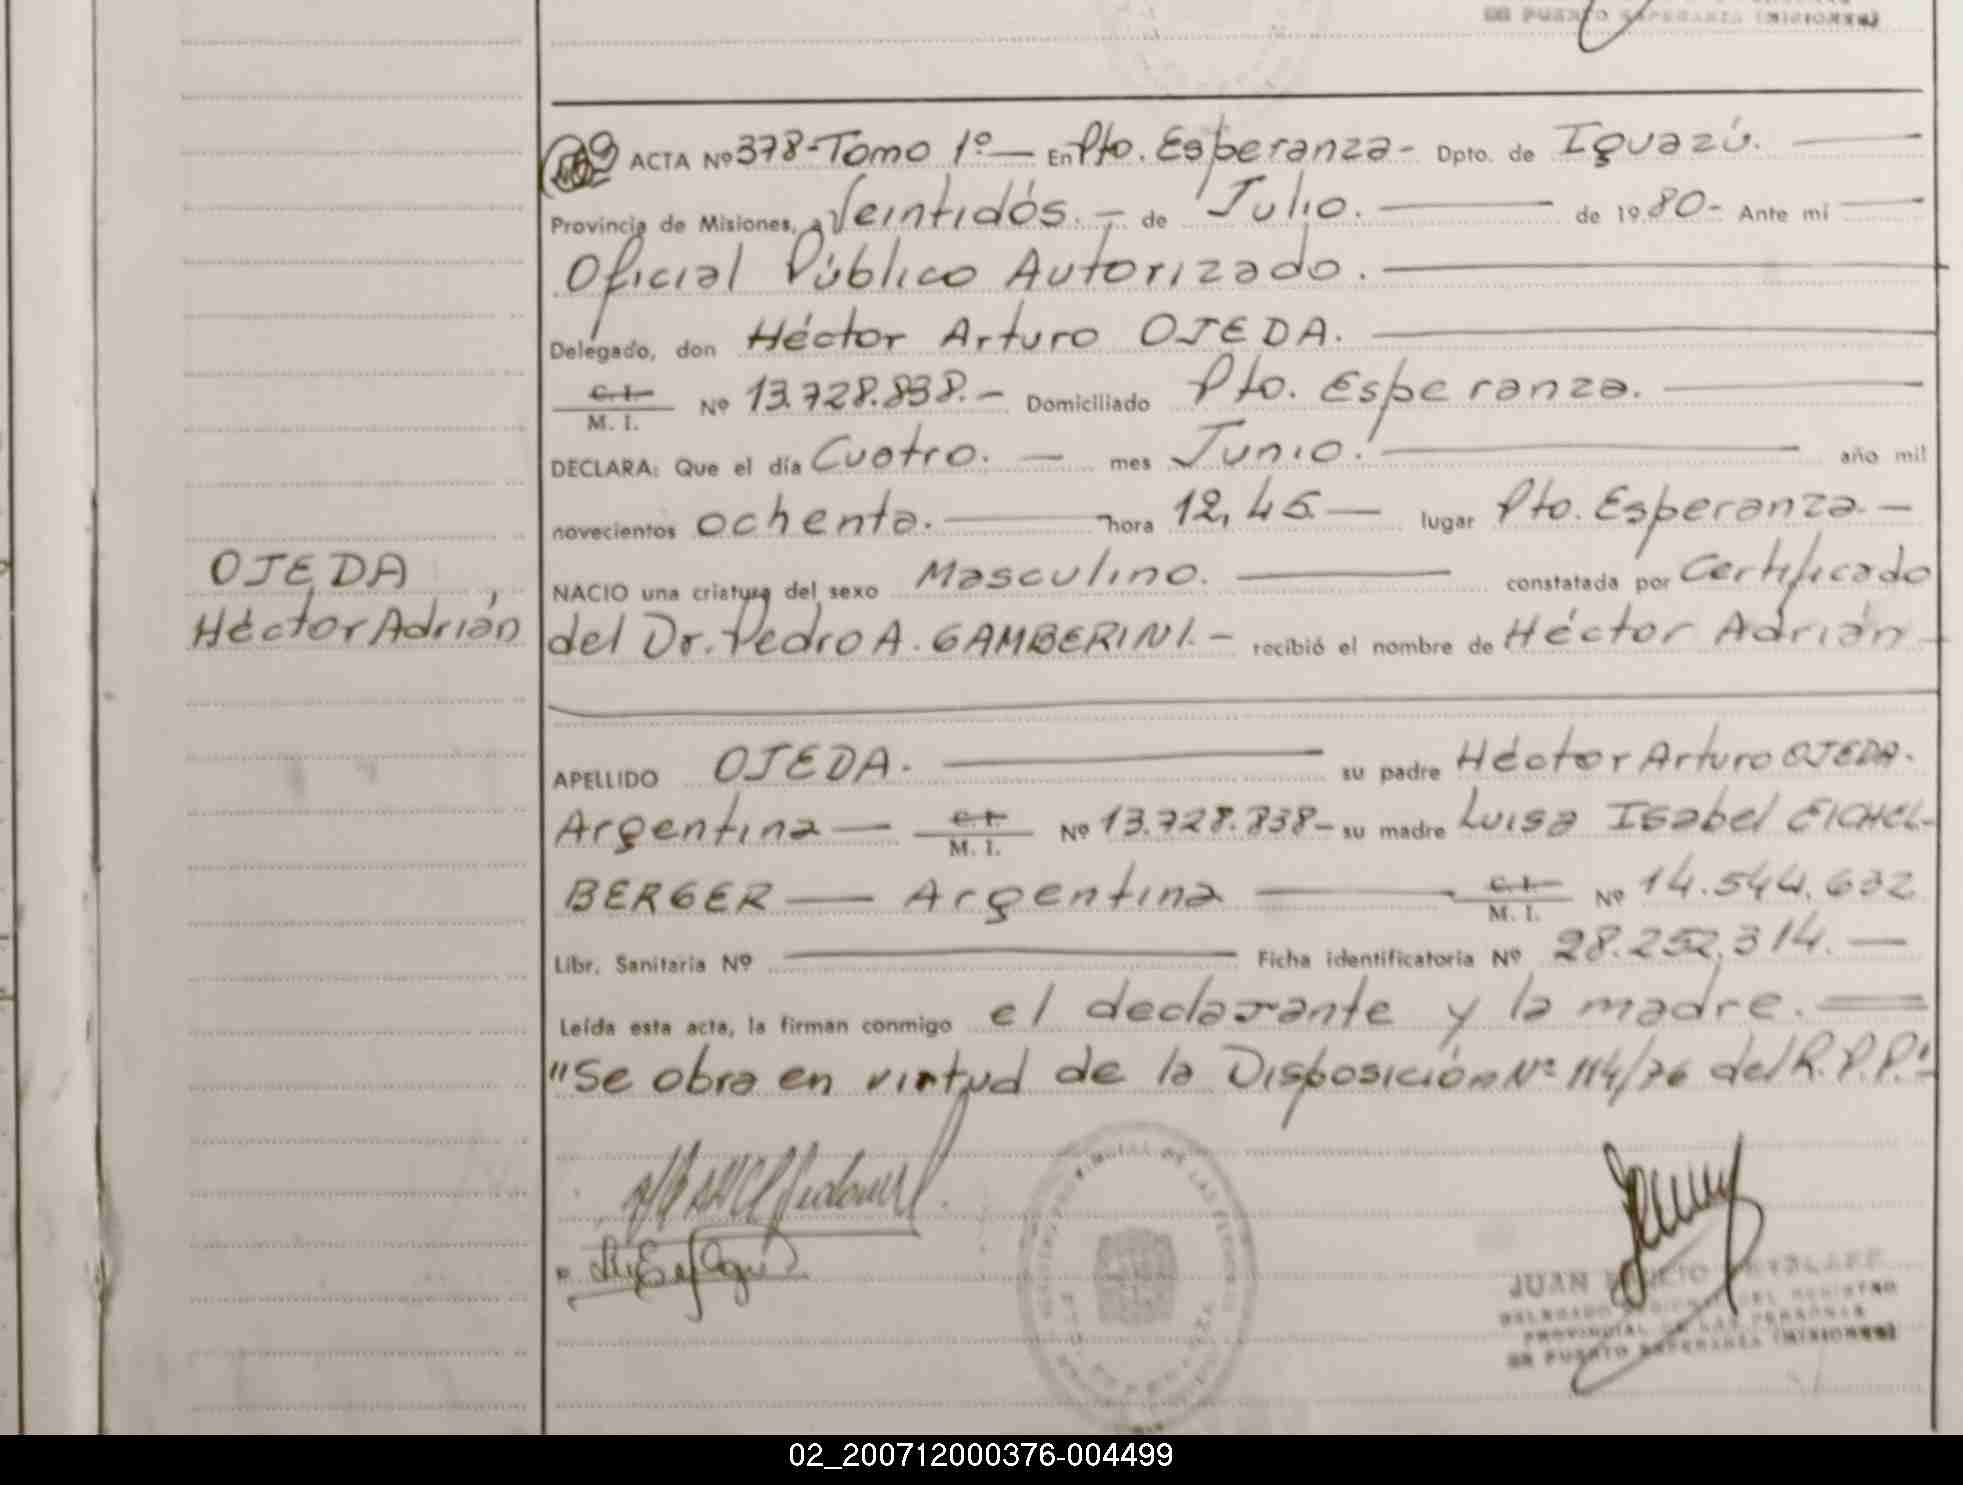 DE PUERTO ESPERANZA (MISIONES)
ACTA Nº 378-Tomo 1º— En Pto. Esperanza- Dpto. de Iguazú.
Provincia de Misiones, a Veintidós.- de Julio. de 1980- Ante mí
Oficial Público Autorizado.
Delegado, don Héctor Arturo OJEDA.
C.I. M. I. Nº 13.728.838.- Domiciliado Pto. Esperanza.
DECLARA: Que el día Cuatro. — mes Junio. año mil
novecientos ochenta. hora 12,45 — lugar Pto. Esperanza.-
NACIO una criatura del sexo Masculino. constatada por Certificado
OJEDA
Héctor Adrián
del Dr. Pedro A. GAMBERINI.- recibió el nombre de Héctor Adrián
APELLIDO OJEDA. su padre Héctor Arturo OJEDA.
Argentina — C.I. M. I. Nº 13.728.838- su madre Luisa Isabel EICHEL-
BERGER — Argentina C.I. M. I. Nº 14.544.632
Libr. Sanitaria Nº Ficha identificatoria Nº 28.252.314.—
Leída esta acta, la firman conmigo el declarante y la madre.
"Se obra en virtud de la Disposición Nº 114/76 del R.P.P."-
JUAN
DELEGADO DEL REGISTRO
PROVINCIAL DE LAS PERSONAS
DE PUERTO ESPERANZA (MISIONES)
02_200712000376-004499